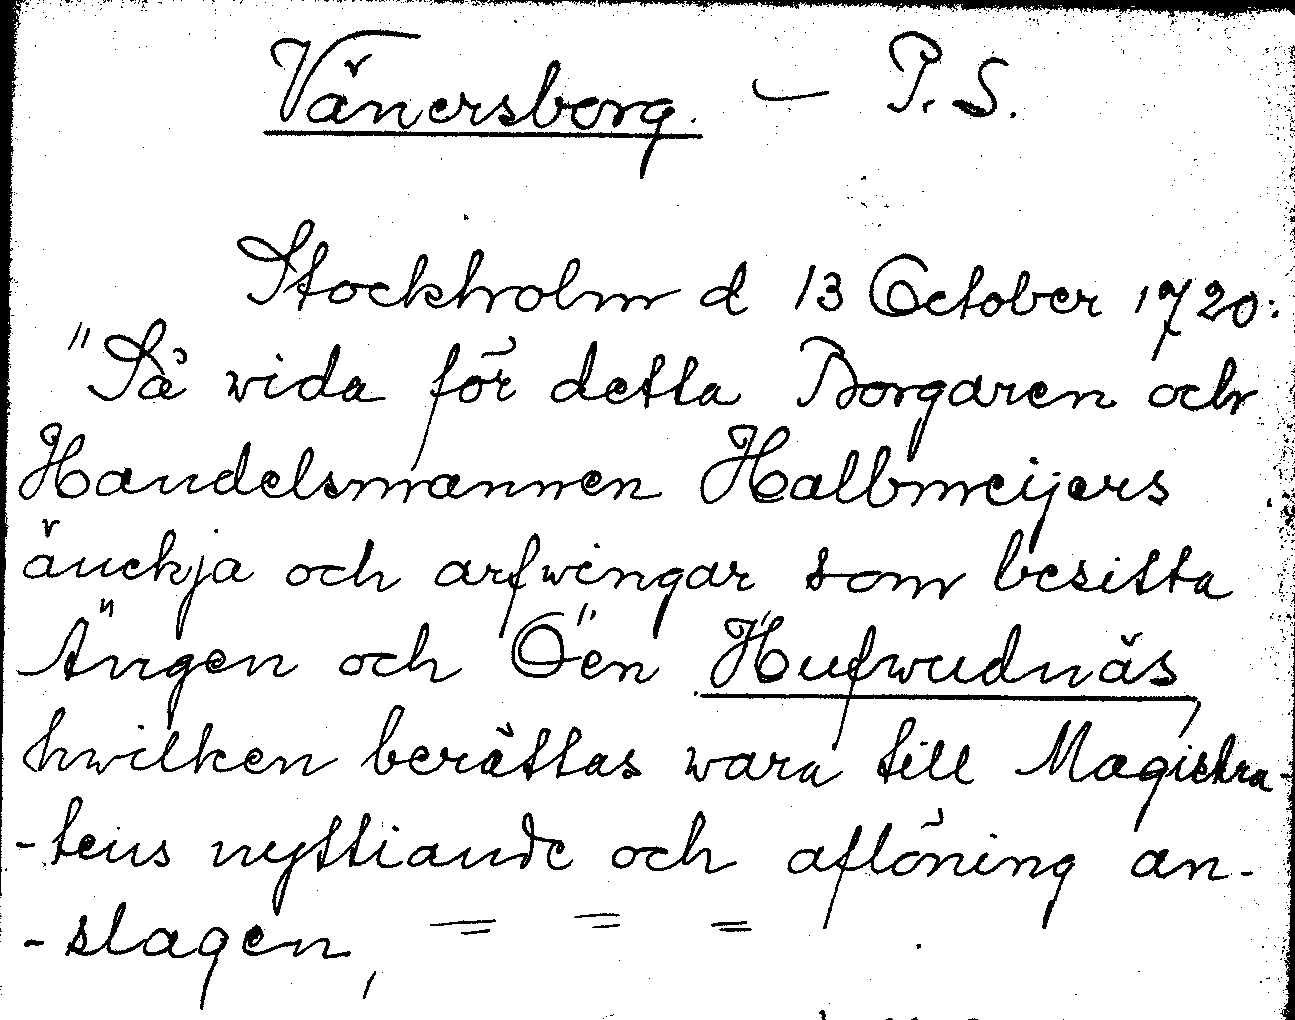 Vänersborg. – P.S.
Stockholm d 13 October 1720:
"Så wida för detta Borgaren och
Handelsmannen Halbmeijers
änckja och arfwingar som besitta
Ängen och Öen Hufwudnäs,
hwilken berättas wara till Magistra-
-tens nyttiande och aflöning an-
-slagen, = = =